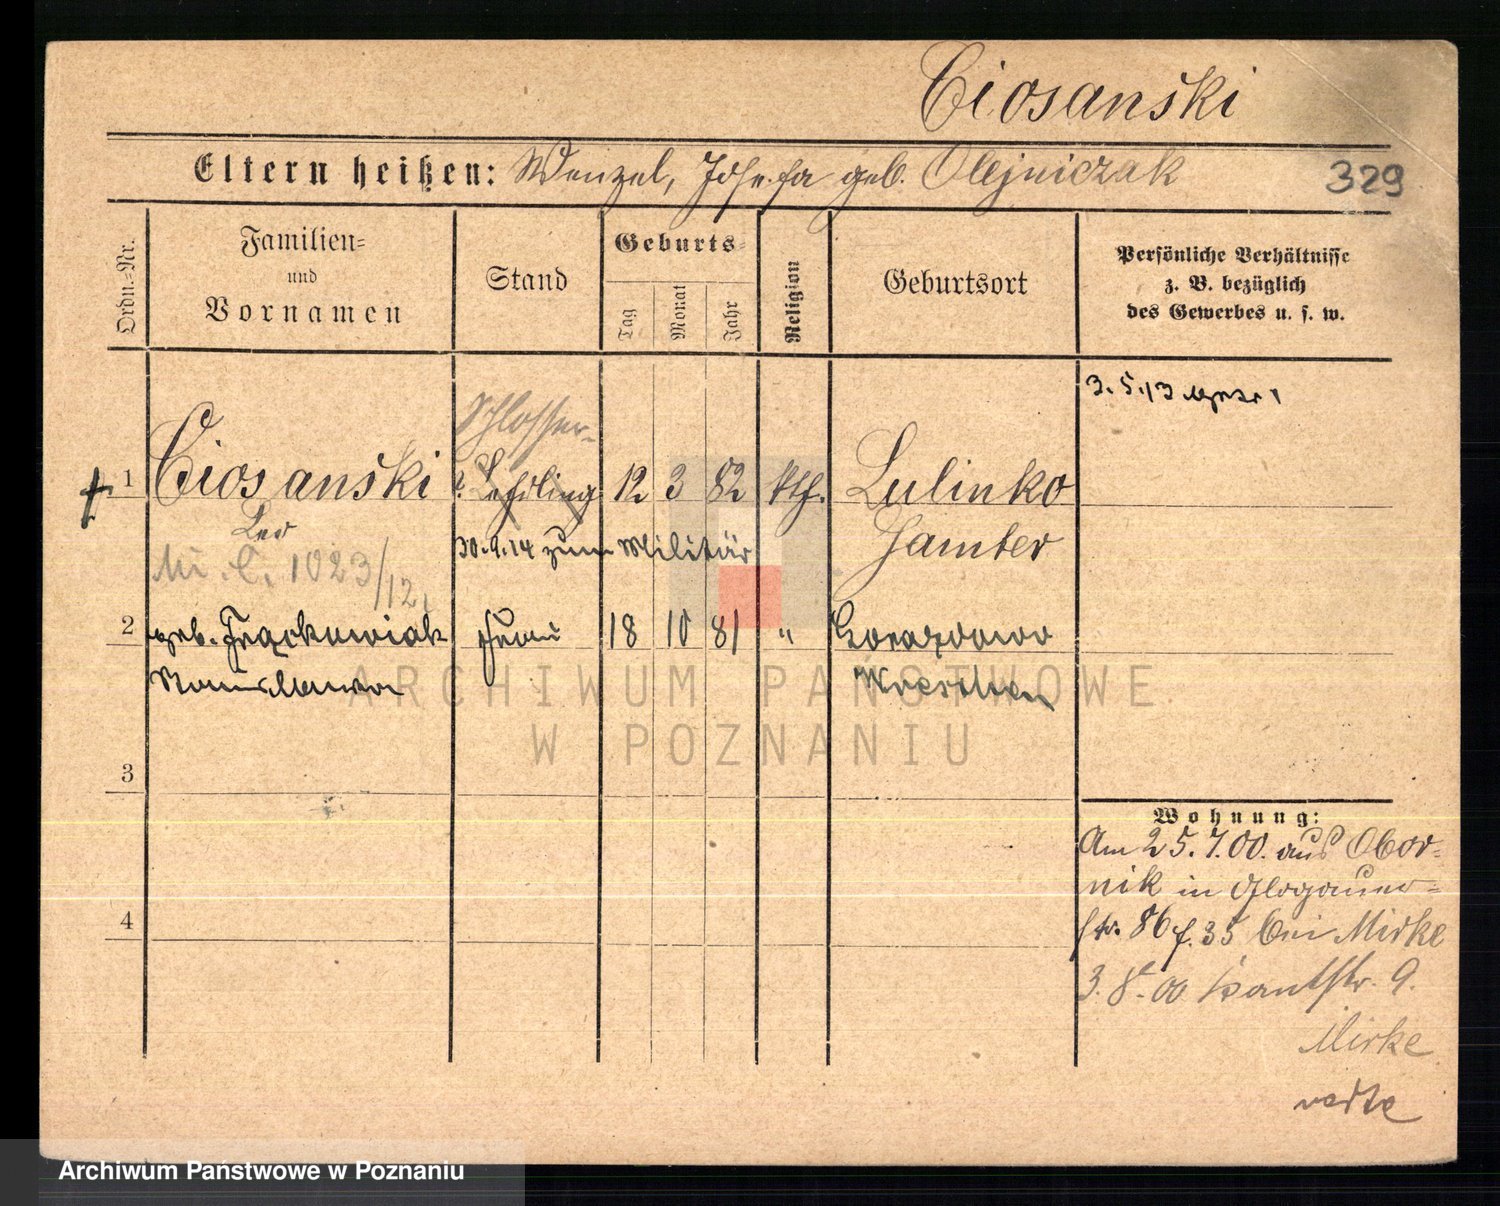 Ciosanski
Eltern heißen: Wenzel, Josefa geb. Olejniczak
329
Ordn.-Nr.
Familien-
und
Vornamen
Stand
Geburts-
Tag
Monat
Jahr
Religion
Geburtsort
Persönliche Verhältnisse
z. B. bezüglich
des Gewerbes u. s. w.
3.5.13
Schlosser-
1 Ciosanski Lehrling 12 3 82 kth. Lulinko
Leo
30.9.14 zum Militär Samter
Mü. C. 1023/12
2 geb. Frąckowiak Frau 18 10 81 "
Stanislawa Wreschen
3
Wohnung:
Am 25.7.00. aus Obor-
nik in Glogauer-
str. 86 f. 35 bei Mirke
4
3.8.00 Kantstr. 9.
Mirke
verte
ARCHIWUM PAŃSTWOWE
W POZNANIU
Archiwum Państwowe w Poznaniu